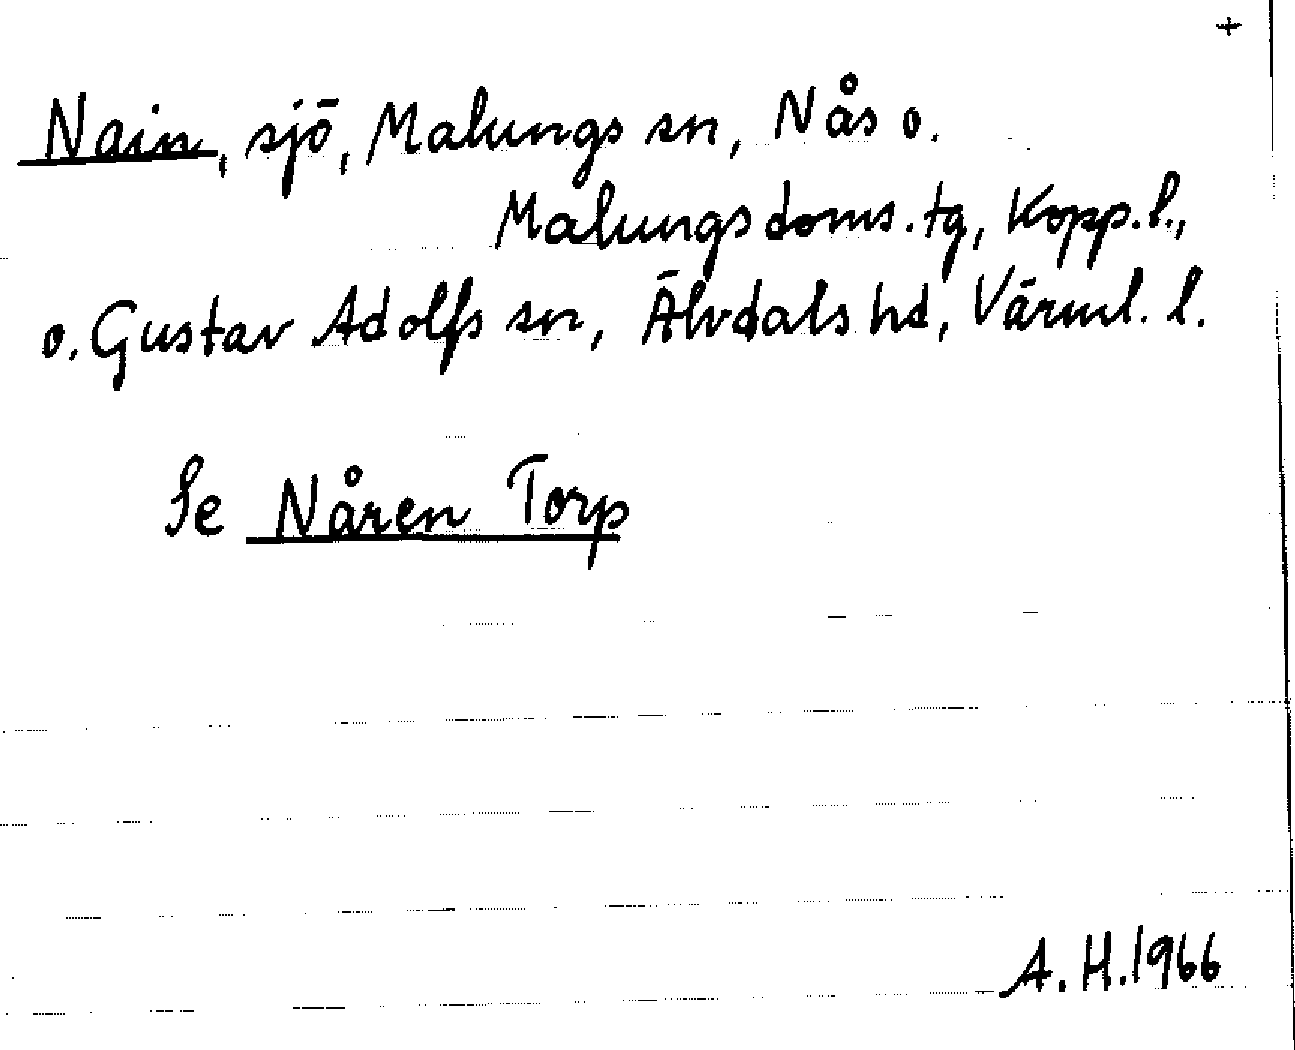 +
Nain, sjö, Malungs sn, Nås o.
Malungs doms. tg, Kopp. l.,
o. Gustav Adolfs sn, Älvdals hd, Värml. l.
Se Nåren Torp
A. H. 1966